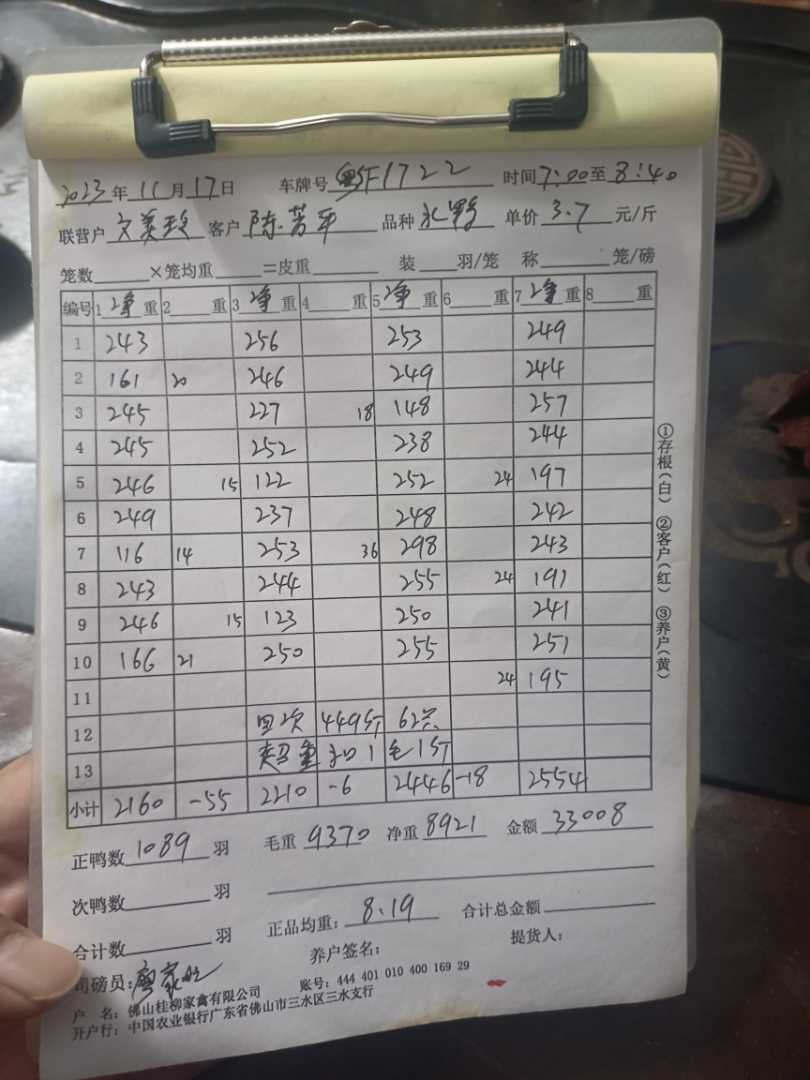 2023年11月17日 车牌号 粤F1722 时间7:00至8:40
联营户 文美玲 客户 陈芳平 品种 水野 单价 3.7 元/斤
笼数 ×笼均重 =皮重 装 羽/笼 称 笼/磅
编号 1 净 重 2 重 3 净 重 4 重 5 净 重 6 重 7 净 重 8 重
1 243 256 253 249
2 161 20 246 249 244
3 245 227 18 148 257
4 245 252 238 244
5 246 15 122 252 24 197
6 249 237 248 242
7 116 14 253 36 298 243
8 243 244 255 24 191
9 246 15 123 250 241
10 166 21 250 255 251
11 24 195
12 回次 449斤 62只
13 超重 扣1毛1斤
小计 2160 -55 2210 -6 2446 -18 2554
正鸭数 1089 羽 毛重 9370 净重 8921 金额 33008
次鸭数 羽
合计数 羽 正品均重: 8.19 合计总金额
司磅员: 养户签名: 提货人:
户 名: 佛山桂柳家禽有限公司 账号: 444 401 010 400 169 29
开户行: 中国农业银行广东省佛山市三水区三水支行
①存根(白) ②客户(红) ③养户(黄)